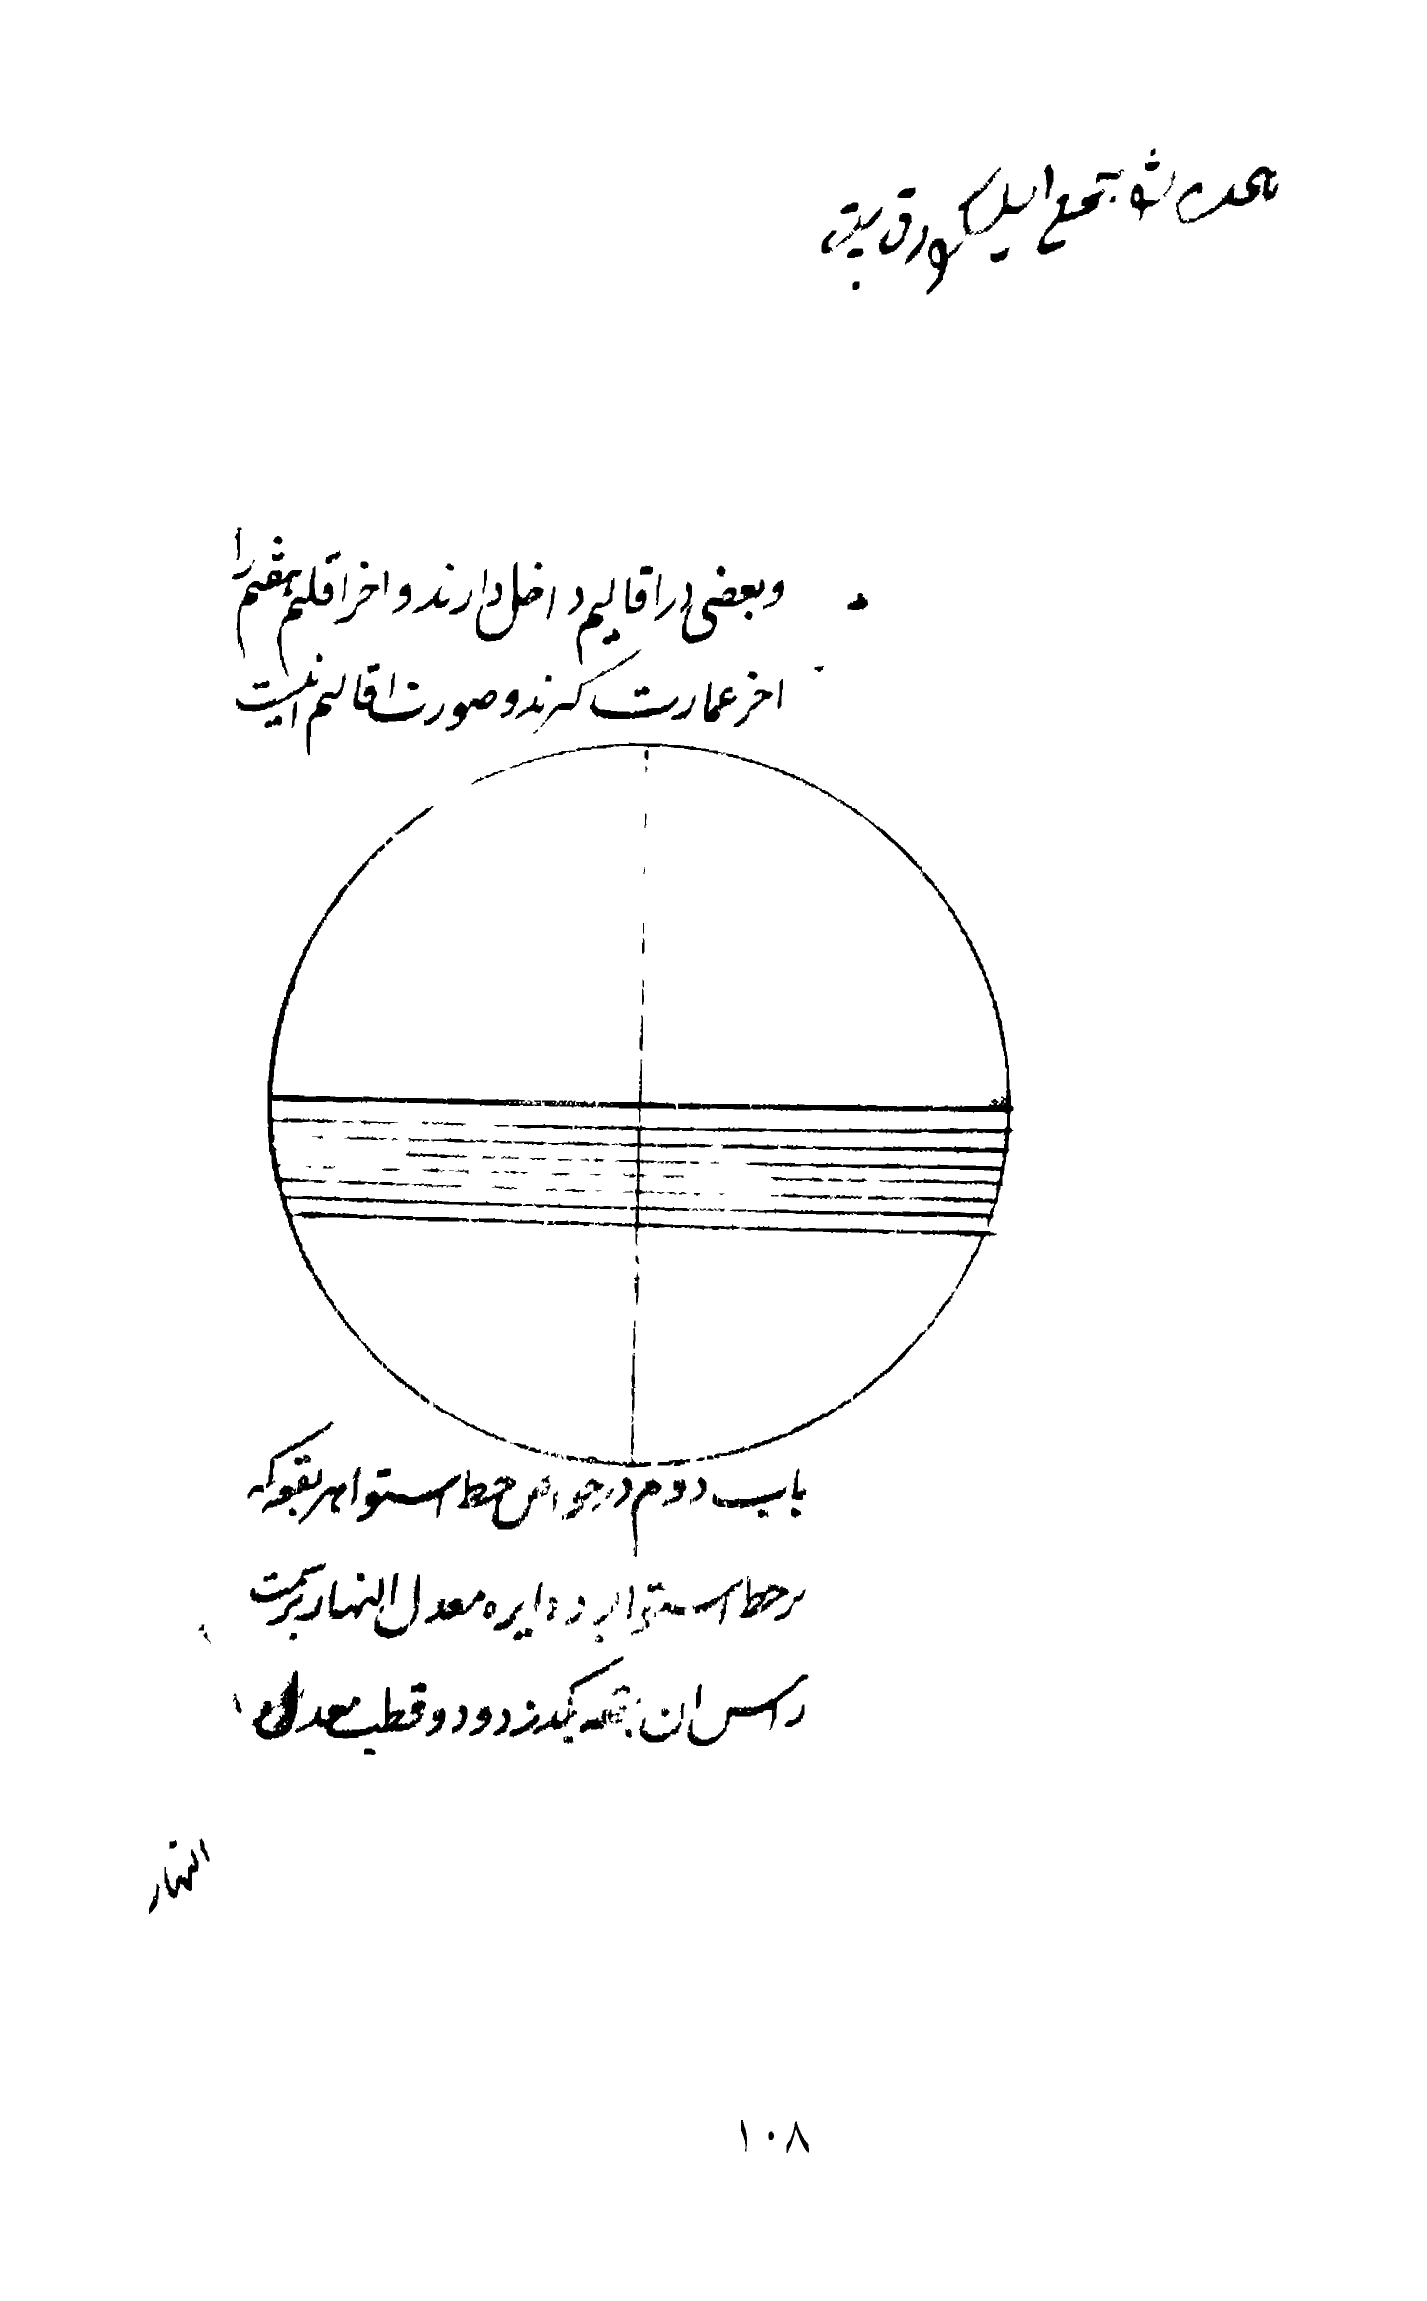 وبعضی در اقالیم داخل دارند و اخر اقلیم هفتم را
اخر عمارت کیرند و صورت اقالیم اینست
باب دوم در خواص خط استوا هر بقعه که
بر خط استوا بود دایره معدل النهار بر سمت
راس ان بقعه بکذرد و دو قطب معدل
النهار
۱۰۸